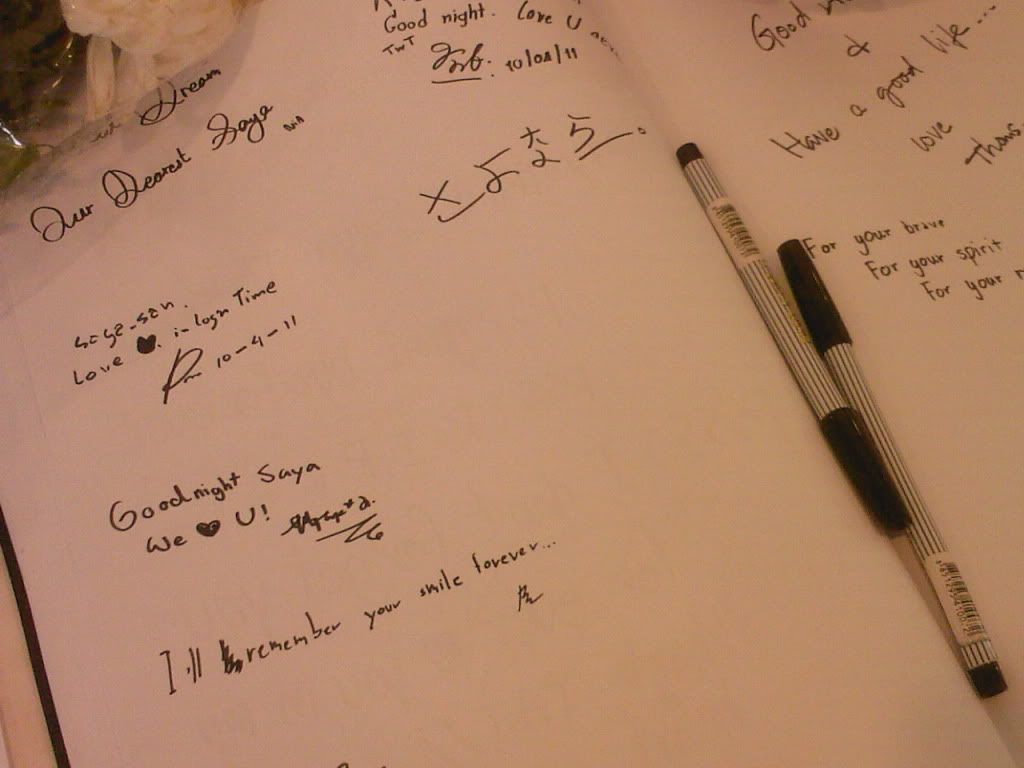 Good night. Love U
TwT
10/04/11
Dream
Our Dearest Saya
saya-san.
Love ♥. in logn Time
10-4-11
Goodnight Saya
We ♥ U!
I'll remember your smile forever...
Good
&
Have a good life...
love
For your brave
For your spirit
For your